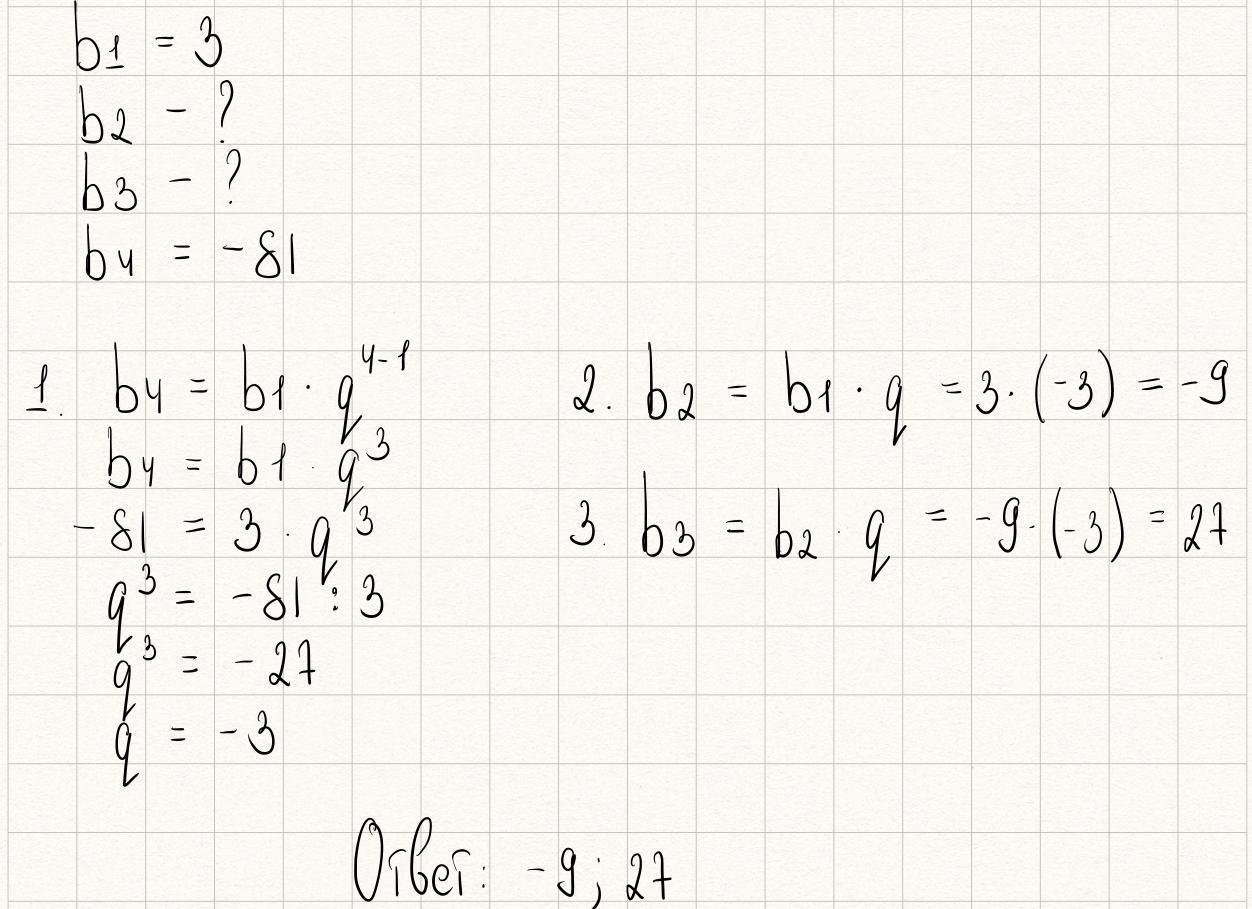 b1 = 3
b2 - ?
b3 - ?
b4 = -81
1. b4 = b1 · q^4-1
b4 = b1 · q^3
-81 = 3 · q^3
q^3 = -81 : 3
q^3 = -27
q = -3
2. b2 = b1 · q = 3 · (-3) = -9
3. b3 = b2 · q = -9 · (-3) = 27
Ответ: -9; 27